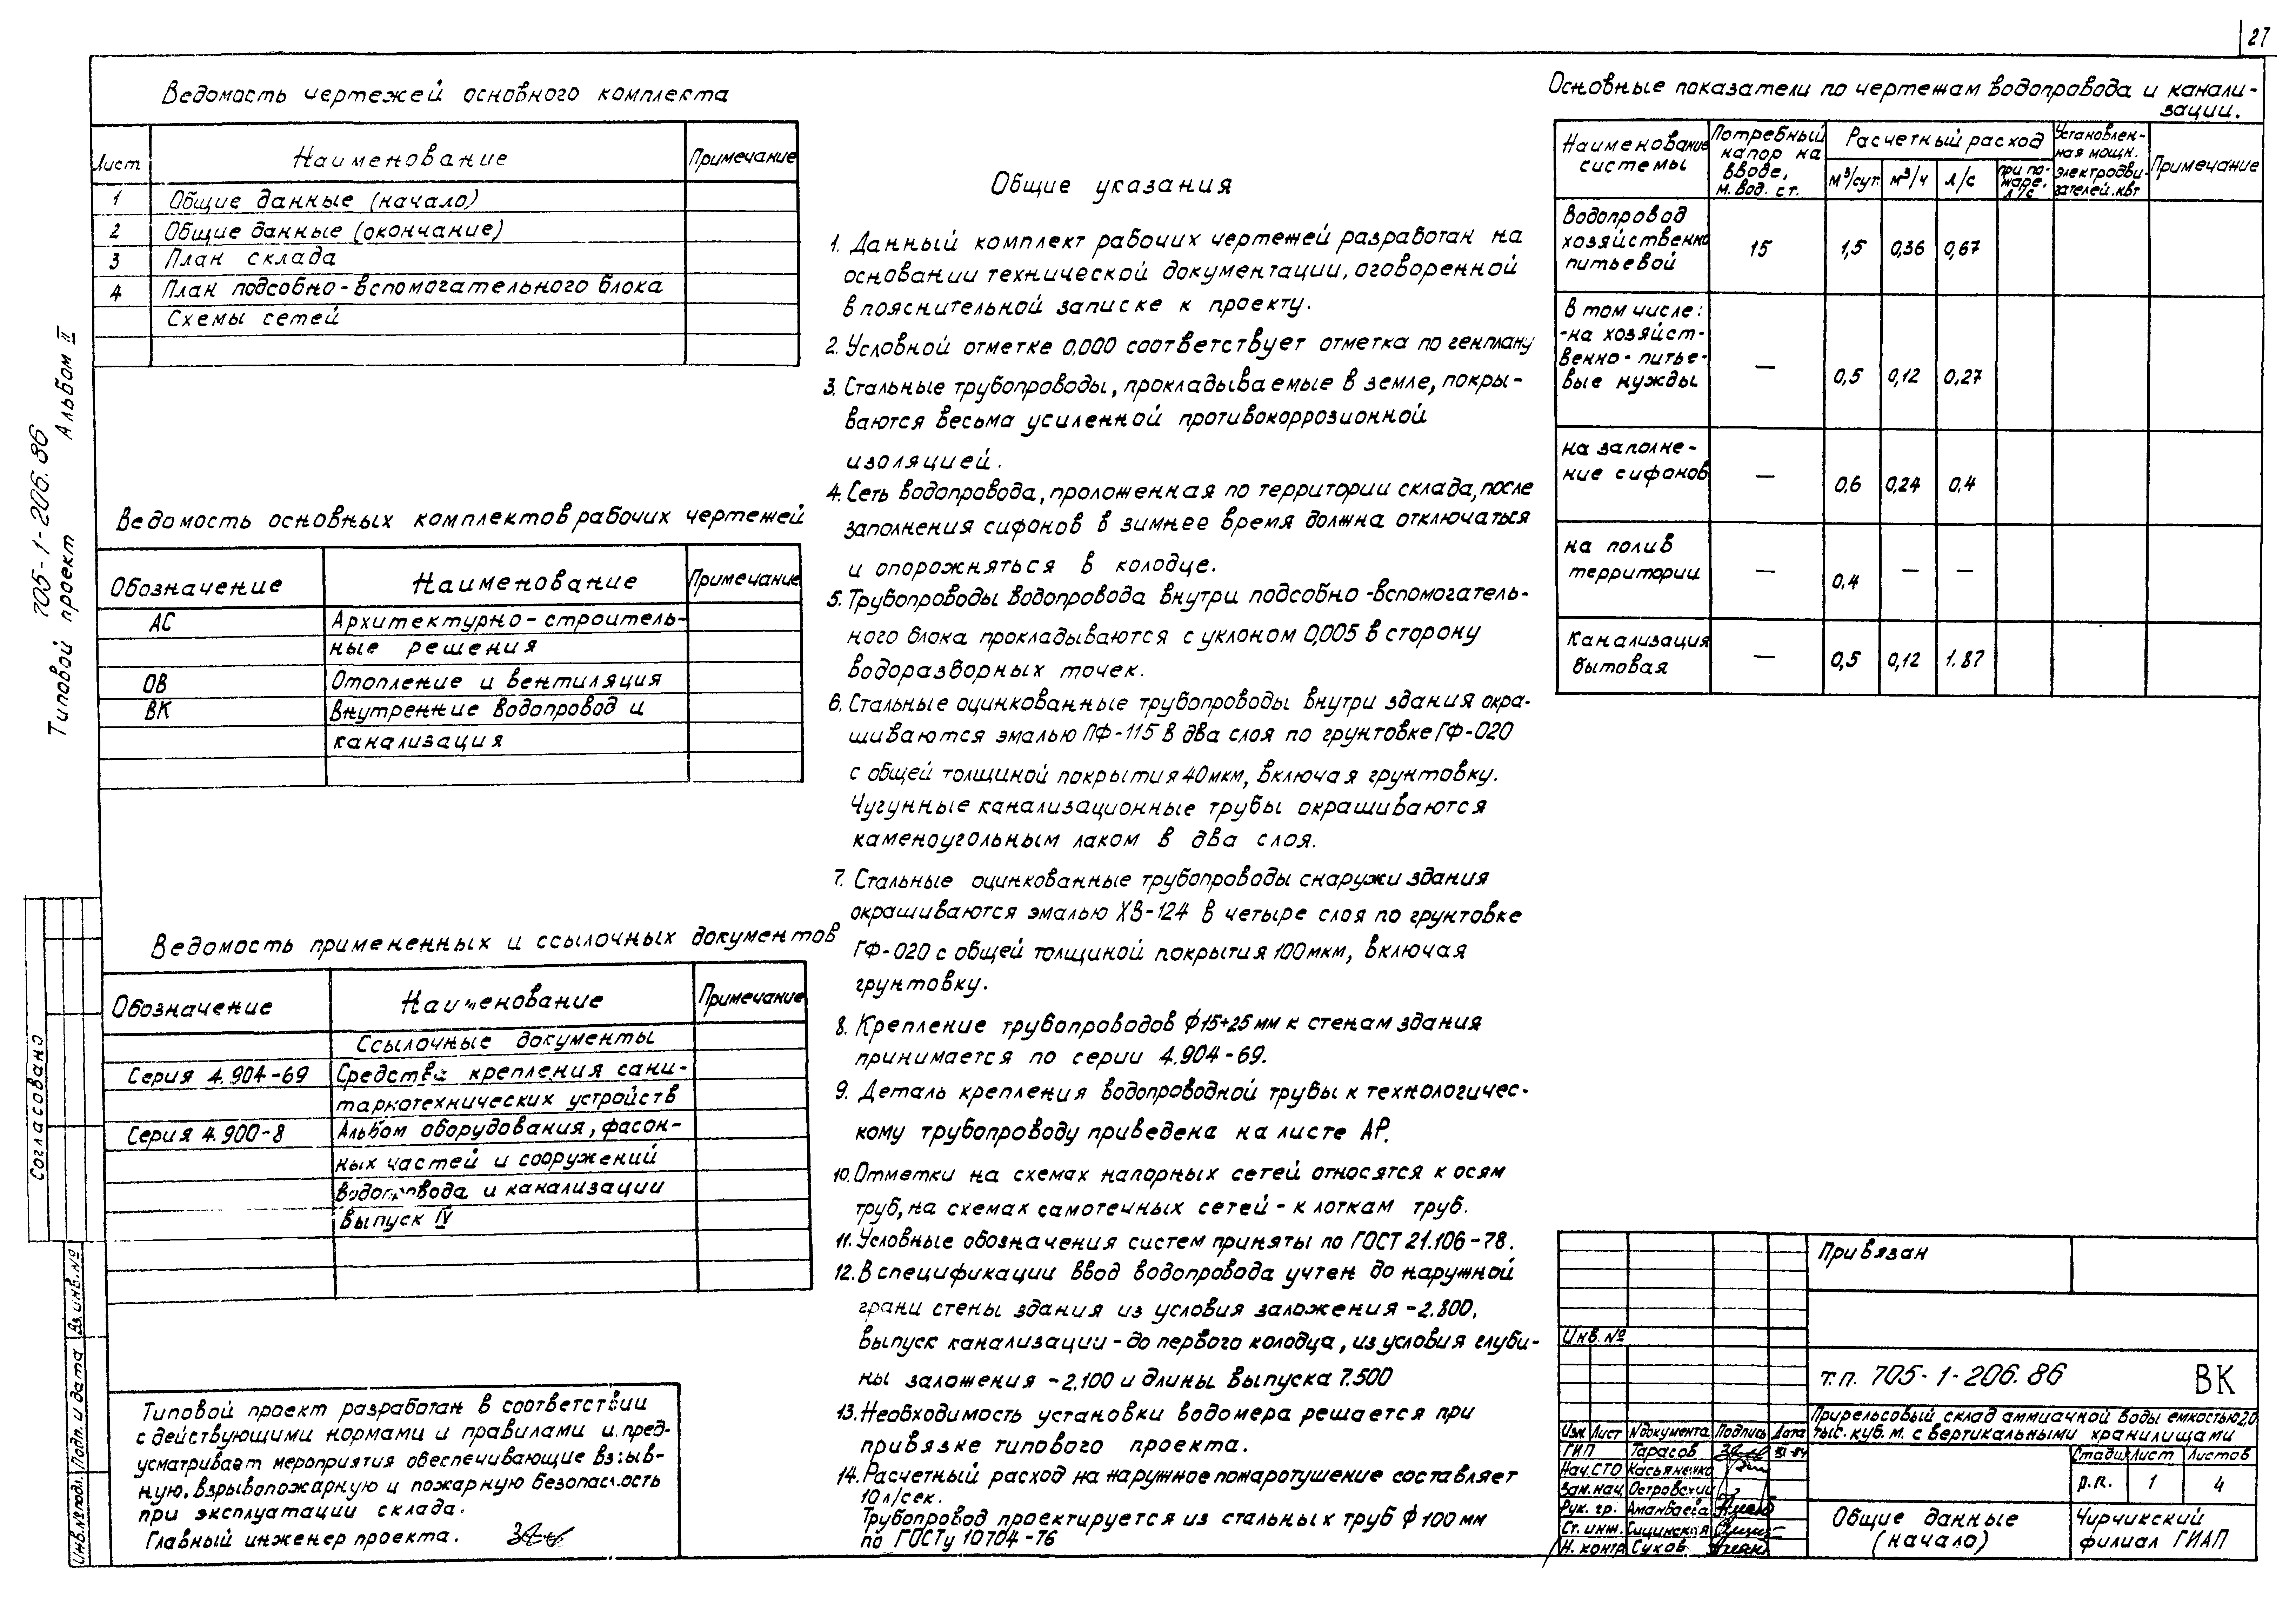 27
Типовой проект 705-1-206.86 Альбом II
Ведомость чертежей основного комплекта
Лист Наименование Примечание
1 Общие данные (начало)
2 Общие данные (окончание)
3 План склада
4 План подсобно-вспомогательного блока
Схемы сетей
Ведомость основных комплектов рабочих чертежей
Обозначение Наименование Примечание
АС Архитектурно-строитель-
ные решения
ОВ Отопление и вентиляция
ВК Внутренние водопровод и
канализация
Ведомость примененных и ссылочных документов
Обозначение Наименование Примечание
Ссылочные документы
Серия 4.904-69 Средства крепления сани-
тарнотехнических устройств
Серия 4.900-8 Альбом оборудования, фасон-
ных частей и сооружений
водопровода и канализации
выпуск IV
Типовой проект разработан в соответствии
с действующими нормами и правилами и пред-
усматривает мероприятия обеспечивающие взрыв-
ную, взрывопожарную и пожарную безопасность
при эксплуатации склада.
Главный инженер проекта.
Согласовано
Инв.№подл. Подп. и дата Вз.инв.№
Общие указания
1. Данный комплект рабочих чертежей разработан на
основании технической документации, оговоренной
в пояснительной записке к проекту.
2. Условной отметке 0.000 соответствует отметка по генплану
3. Стальные трубопроводы, прокладываемые в земле, покры-
ваются весьма усиленной противокоррозионной
изоляцией.
4. Сеть водопровода, проложенная по территории склада, после
заполнения сифонов в зимнее время должна отключаться
и опорожняться в колодце.
5. Трубопроводы водопровода внутри подсобно-вспомогатель-
ного блока прокладываются с уклоном 0,005 в сторону
водоразборных точек.
6. Стальные оцинкованные трубопроводы внутри здания окра-
шиваются эмалью ПФ-115 в два слоя по грунтовке ГФ-020
с общей толщиной покрытия 40мкм, включая грунтовку.
Чугунные канализационные трубы окрашиваются
каменоугольным лаком в два слоя.
7. Стальные оцинкованные трубопроводы снаружи здания
окрашиваются эмалью ХВ-124 в четыре слоя по грунтовке
ГФ-020 с общей толщиной покрытия 100мкм, включая
грунтовку.
8. Крепление трубопроводов ϕ15÷25 мм к стенам здания
принимается по серии 4.904-69.
9. Деталь крепления водопроводной трубы к технологичес-
кому трубопроводу приведена на листе АР.
10. Отметки на схемах напорных сетей относятся к осям
труб, на схемах самотечных сетей - к лоткам труб.
11. Условные обозначения систем приняты по ГОСТ 21.106-78.
12. В спецификации ввод водопровода учтен до наружной
грани стены здания из условия заложения -2.800,
выпуск канализации - до первого колодца, из условия глуби-
ны заложения -2.100 и длины выпуска 7.500
13. Необходимость установки водомера решается при
привязке типового проекта.
14. Расчетный расход на наружное пожаротушение составляет
10 л/сек.
Трубопровод проектируется из стальных труб ϕ 100 мм
по ГОСТу 10704-76
Основные показатели по чертежам водопровода и канали-
зации.
Наименование системы Потребный напор на вводе, м. вод. ст. Расчетный расход м³/сут. м³/ч л/с при по-жаре, л/с Установлен-ная мощн. электродви-гателей, квт Примечание
Водопровод
хозяйственно 15 1,5 0,36 0,67
питьевой
В том числе:
-на хозяйст-
венно-питье-
вые нужды — 0,5 0,12 0.27
на заполне-
ние сифонов — 0.6 0,24 0.4
на полив
территории — 0,4 — —
Канализация
бытовая — 0,5 0,12 1.87
Привязан
Инв. №
т.п. 705-1-206.86 ВК
Прирельсовый склад аммиачной воды емкостью 2,0
тыс. куб. м. с вертикальными хранилищами
Изм Лист №документа Подпись Дата
ГИП Тарасов
Нач.СТО Касьяненко
Зам.нач. Островский
Рук. гр. Аманбаева
Ст. инж. Сицинская
Н. контр Сухов
Стадия Лист Листов
р.п. 1 4
Общие данные
(начало)
Чирчикский
филиал ГИАП